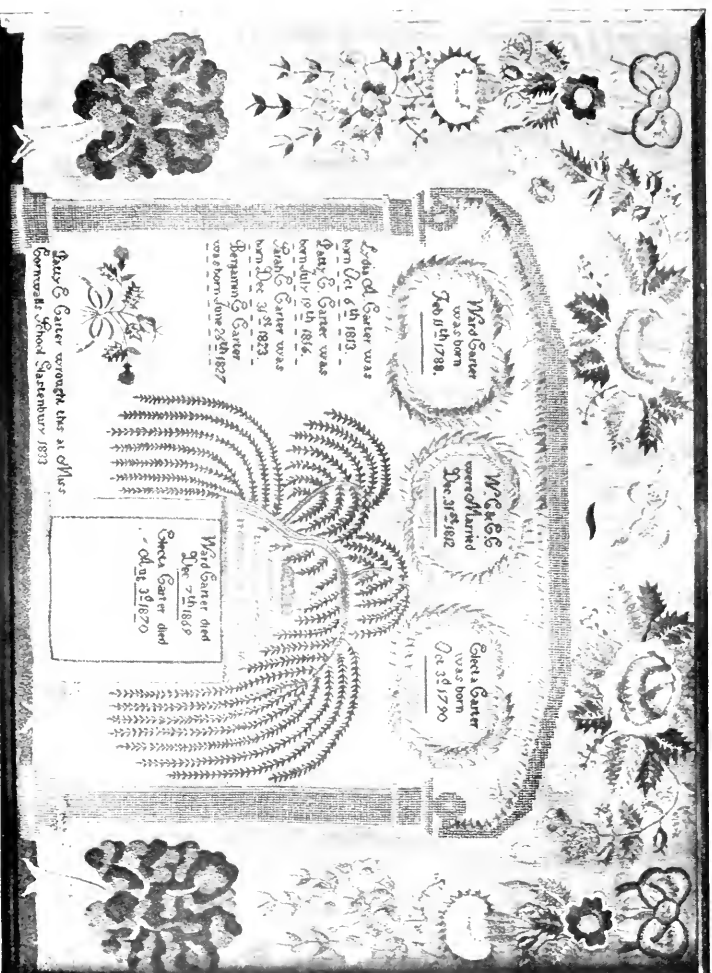 Ward Carter
was born
Feb 11th 1788.
W C & E C
were Married
Dec 31st 1812
Electa Carter
was born
Oct 3d 1790
A Carter was
born Oct 6th 1813
Patty C Carter was
born July 19th 1816.
Sarah E Carter was
born Dec 31st 1823.
Benjamin E Carter
was born June 26th 1827
Ward Carter died
Dec 7th 1869
Electa Carter died
3d 1870
Patty C Carter wrought this at Miss
Cornwalls School Glastenbury 1833